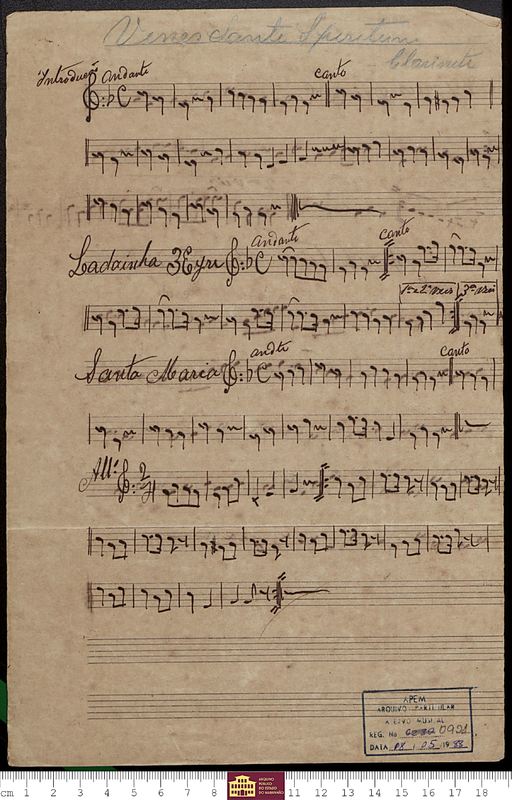 Venes Sante Speritum
Clarinete
Introdução Andante canto
Ladainha 3 Eyri andante canto
1ª e 2ª veis 3ª veis
Santa Maria andte canto
Allº 2/4
APEM
ARQUIVO PARTICULAR
ACERVO MUSICAL
REG. No 0921
DATA 05
cm 1 2 3 4 5 6 7 8 11 12 13 14 15 16 17 18
ARQUIVO
PÚBLICO
DO ESTADO
DO MARANHÃO